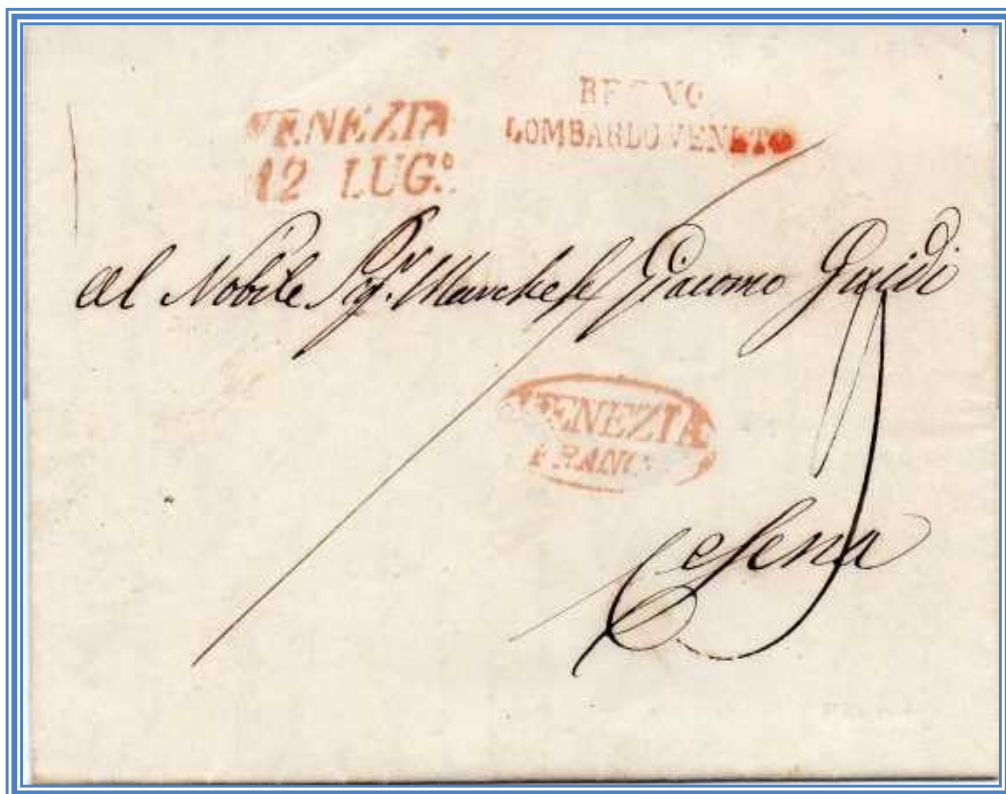 VENEZIA
12 LUG.º
REGNO
LOMBARDO VENETO
Al Nobile Sigr. Marchese Giacomo Guidi
VENEZIA
FRANCA
Cesena